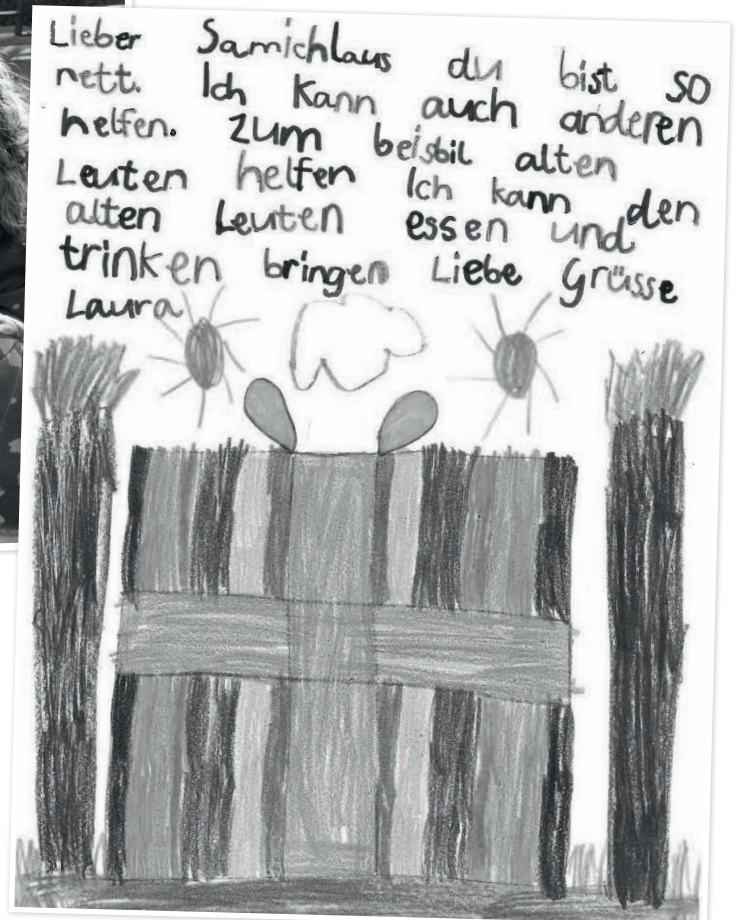 Lieber Samichlaus du bist so
nett. Ich kann auch anderen
helfen. Zum beisbil alten
Leuten helfen Ich kann den
alten Leuten essen und
trinken bringen Liebe Grüsse
Laura